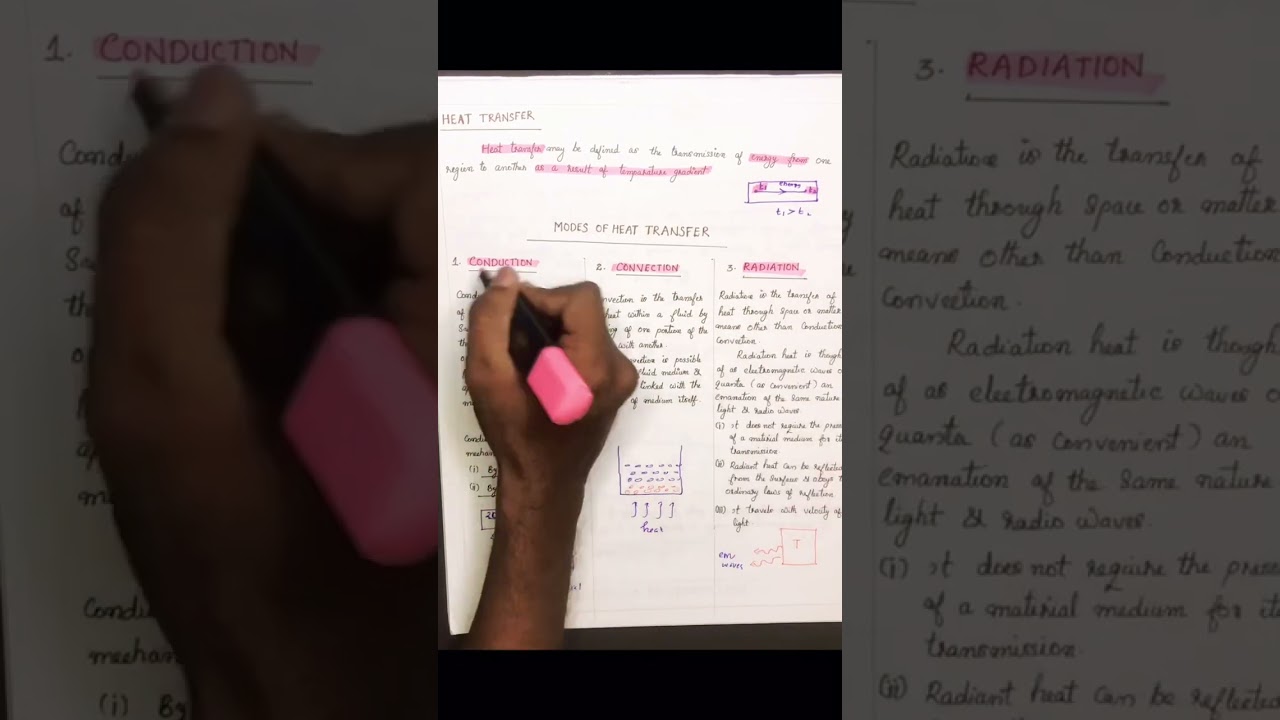 HEAT TRANSFER
Heat transfer may be defined as the transmission of energy from one
region to another as a result of temparature gradient
t₁ energy t₂
t₁ > t₂
MODES OF HEAT TRANSFER
1. CONDUCTION
Cond
of
Su
th
o
Condu
mechan
(i) By
(ii) By
2. CONVECTION
nvection is the transfer
heat within a fluid by
ing of one portion of the
with another.
vection is possible
fluid medium &
linked with the
of medium itself.
heat
3. RADIATION
Radiation is the transfer of
heat through space or matter
means other than Conduction
Convection.
Radiation heat is though
of as electromagnetic waves o
quanta (as convenient) an
emanation of the same nature
light & radio waves.
(i) It does not require the pres
of a material medium for its
transmission.
(ii) Radiant heat can be reflected
from the surfaces & obeys t
ordinary laws of reflection.
(iii) It travels with velocity of
light
em
waves
T
1. CONDUCTION
Condu
of
Su
th
Condu
mechan
(i) By
3. RADIATION
Radiation is the transfer of
heat through space or matter
means other than Conduction
Convection.
Radiation heat is though
of as electromagnetic waves o
quanta (as convenient) an
emanation of the same nature
light & radio waves.
(i) It does not require the pres
of a material medium for its
transmission.
(ii) Radiant heat can be reflected